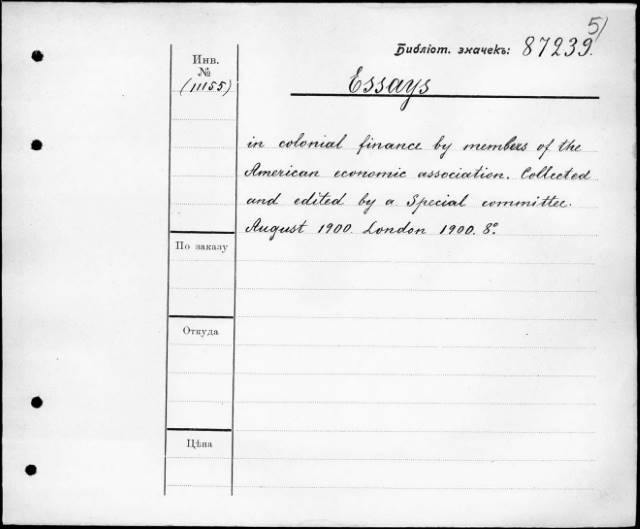 5)
Библіот. значекъ: 87239.
Инв.
№
(11155)
Essays
in colonial finance by members of the
American economic association. Collected
and edited by a Special committee.
August 1900. London 1900. 8°.
По заказу
Откуда
Цѣна